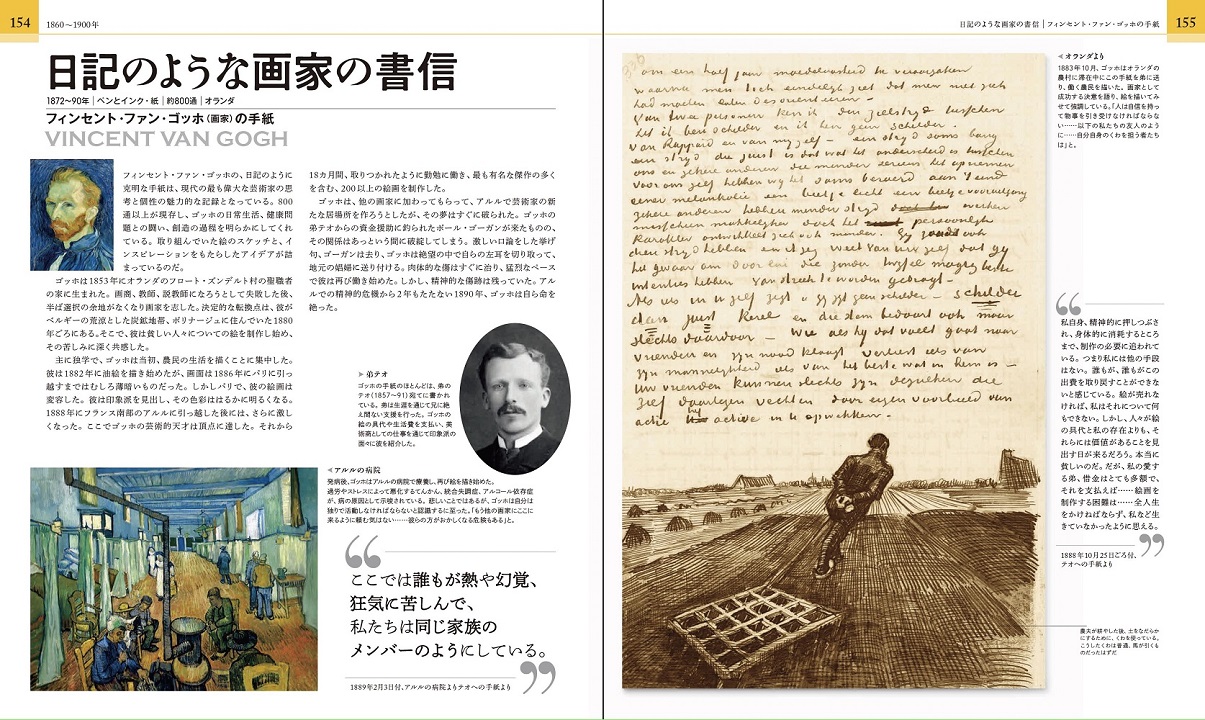 154
1860〜1900年
日記のような画家の書信
1872〜90年｜ペンとインク・紙｜約800通｜オランダ
フィンセント・ファン・ゴッホ（画家）の手紙
VINCENT VAN GOGH
フィンセント・ファン・ゴッホの、日記のように
克明な手紙は、現代の最も偉大な芸術家の思
考と個性の魅力的な記録となっている。800
通以上が現存し、ゴッホの日常生活、健康問
題との闘い、創造の過程を明らかにしてくれ
ている。取り組んでいた絵のスケッチと、イ
ンスピレーションをもたらしたアイデアが詰
まっているのだ。
ゴッホは1853年にオランダのフロート・ズンデルト村の聖職者
の家に生まれた。画商、教師、説教師になろうとして失敗した後、
半ば選択の余地がなくなり画家を志した。決定的な転換点は、彼が
ベルギーの荒涼とした炭鉱地帯、ボリナージュに住んでいた1880
年ごろにある。そこで、彼は貧しい人々についての絵を制作し始め、
その苦しみに深く共感した。
主に独学で、ゴッホは当初、農民の生活を描くことに集中した。
彼は1882年に油絵を描き始めたが、画面は1886年にパリに引っ
越すまではむしろ薄暗いものだった。しかしパリで、彼の絵画は
変容した。彼は印象派を見出し、その色彩ははるかに明るくなる。
1888年にフランス南部のアルルに引っ越した後には、さらに激し
くなった。ここでゴッホの芸術的天才は頂点に達した。それから
18カ月間、取りつかれたように勤勉に働き、最も有名な傑作の多く
を含む、200以上の絵画を制作した。
ゴッホは、他の画家に加わってもらって、アルルで芸術家の新
たな居場所を作ろうとしたが、その夢はすぐに破られた。ゴッホの
弟テオからの資金援助に釣られたポール・ゴーガンが来たものの、
その関係はあっという間に破綻してしまう。激しい口論をした挙げ
句、ゴーガンは去り、ゴッホは絶望の中で自らの左耳を切り取って、
地元の娼婦に送り付ける。肉体的な傷はすぐに治り、猛烈なペース
で彼は再び働き始めた。しかし、精神的な傷跡は残っていた。アル
ルでの精神的危機から2年もたたない1890年、ゴッホは自ら命を
絶った。
▶弟テオ
ゴッホの手紙のほとんどは、弟の
テオ（1857〜91）宛てに書かれ
ている。弟は生涯を通じて兄に絶
え間ない支援を行った。ゴッホの
絵の具代や生活費を支払い、美
術商としての仕事を通じて印象派の
面々に彼を紹介した。
◀アルルの病院
発病後、ゴッホはアルルの病院で療養し、再び絵を描き始めた。
過労やストレスによって悪化するてんかん、統合失調症、アルコール依存症
が、病の原因として示唆されている。悲しいことではあるが、ゴッホは自分は
独りで活動しなければならないと認識するに至った。「もう他の画家にここに
来るように頼む気はない……彼らの方がおかしくなる危険もある」と。
❝
ここでは誰もが熱や幻覚、
狂気に苦しんで、
私たちは同じ家族の
メンバーのようにしている。
❞
1889年2月3日付、アルルの病院よりテオへの手紙より
日記のような画家の書信｜フィンセント・ファン・ゴッホの手紙
155
om een half jaar moedeloosheid te veroorzaken
waarna men toch eindelijk ziet dat men zich
had moeten
Van twee personen ken ik den zielstryd tusschen
het ik ben schilder en ik ben geen schilder.
Van Rappard en van my zelf – een stryd soms bang
een stryd die juist is dat wat het onderscheid is tusschen
ons en zekere anderen die minder serieus het opnemen
voor ons zelf hebben wy het soms beroerd aan 't eind
eener melankolie een beetje licht een beetje vooruitgang
zekere anderen hebben minder stryd
misschien makkelyker doch het persoonlyk
karakter ontwikkelt zich ook minder. Gy zoudt ook
dien stryd hebben en
Als iets in U zelf zegt gy zyt geen schilder – schilder
dan juist kerel en die stem bedaart ook maar
slechts daardoor – Wie als hy dat voelt gaat naar
vrienden en zyn nood klaagt verliest iets van
zyn mannelykheid iets van het beste wat in hem is –
Uw vrienden kunnen slechts zyn degenen die
zelf daartegen vechten door eigen voorbeeld van
actie de actie in U opwekken.
◀オランダより
1883年10月、ゴッホはオランダの
農村に滞在中にこの手紙を弟に送
り、働く農民を描いた。画家として
成功する決意を語り、絵を描いてみ
せて強調している。「人は自信を持っ
て物事を引き受けなければならな
い……以下の私たちの友人のよう
に……自分自身のくわを担う者たち
は」と。
❝
私自身、精神的に押しつぶさ
れ、身体的に消耗するところ
まで、制作の必要に追われて
いる。つまり私には他の手段
はない。誰もが、誰もがこの
出費を取り戻すことができな
いと感じている。絵が売れな
ければ、私はそれについて何
もできない。しかし、人々が絵
の具代と私の存在よりも、そ
れらには価値があることを見
出す日が来るだろう。本当に
貧しいのだ。だが、私の愛す
る弟、借金はとても多額で、
それを支払えば……絵画を
制作する困難は……全人生
をかけねばならず、私など生
きていなかったように思える。
❞
1888年10月25日ごろ付、
テオへの手紙より
農夫が耕やした後、土をなだらか
にするために、くわを使っている。
こうしたくわは普通、馬が引くも
のだったはずだ